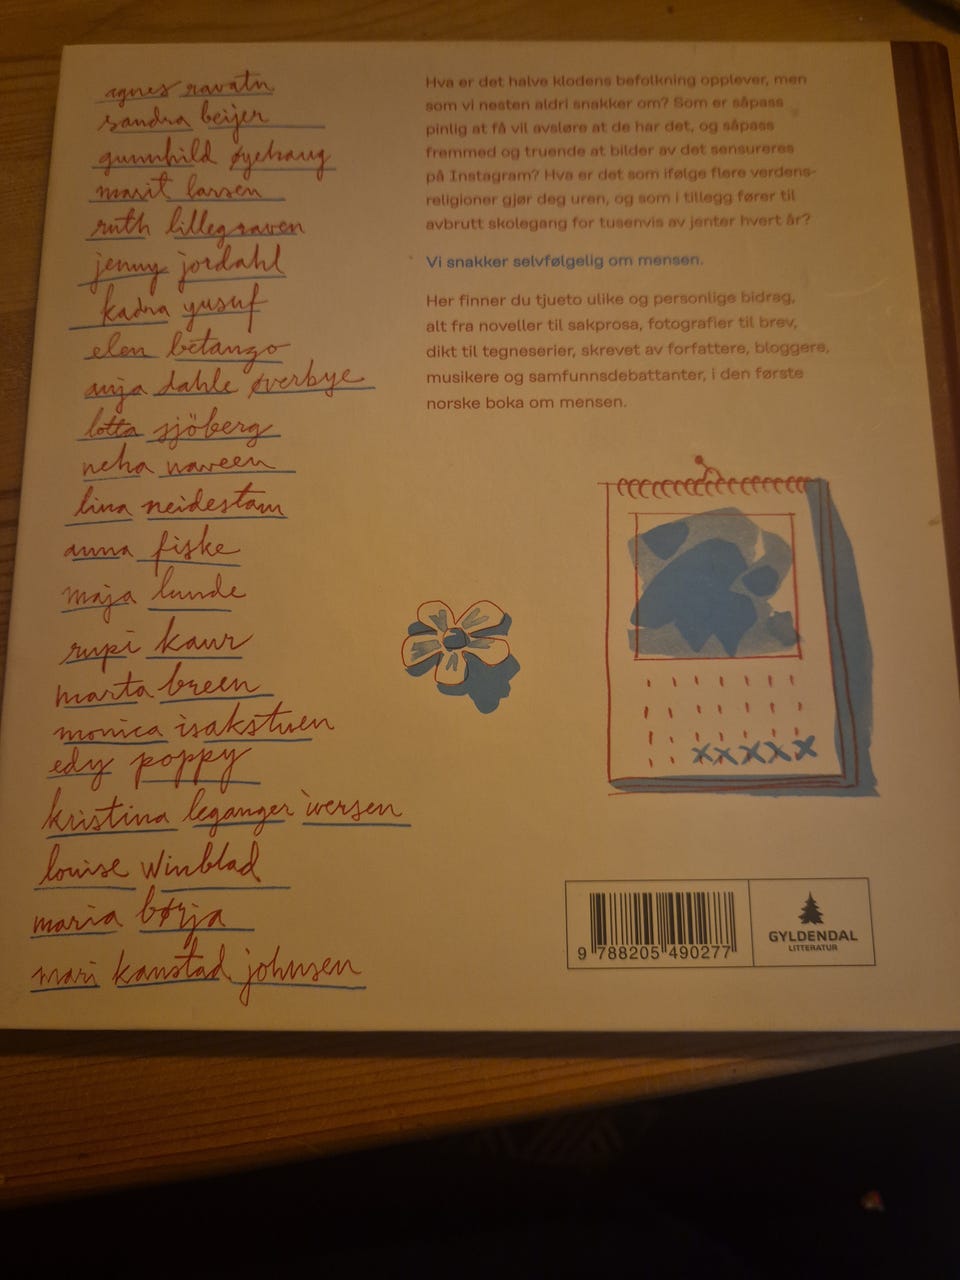 agnes ravatn
sandra beijer
gunnhild øyehaug
marit larsen
ruth lillegraven
jenny jordahl
kadra yusuf
elen betanzo
anja dahle øverbye
lotta sjöberg
neha naveen
lina neidestam
anna fiske
maja lunde
rupi kaur
marta breen
monica isakstuen
edy poppy
kristina leganger iversen
louise winblad
maria børja
mari kanstad johnsen
Hva er det halve klodens befolkning opplever, men
som vi nesten aldri snakker om? Som er såpass
pinlig at få vil avsløre at de har det, og såpass
fremmed og truende at bilder av det sensureres
på Instagram? Hva er det som ifølge flere verdens-
religioner gjør deg uren, og som i tillegg fører til
avbrutt skolegang for tusenvis av jenter hvert år?
Vi snakker selvfølgelig om mensen.
Her finner du tjueto ulike og personlige bidrag,
alt fra noveller til sakprosa, fotografier til brev,
dikt til tegneserier, skrevet av forfattere, bloggere,
musikere og samfunnsdebattanter, i den første
norske boka om mensen.
9 788205 490277
GYLDENDAL
LITTERATUR